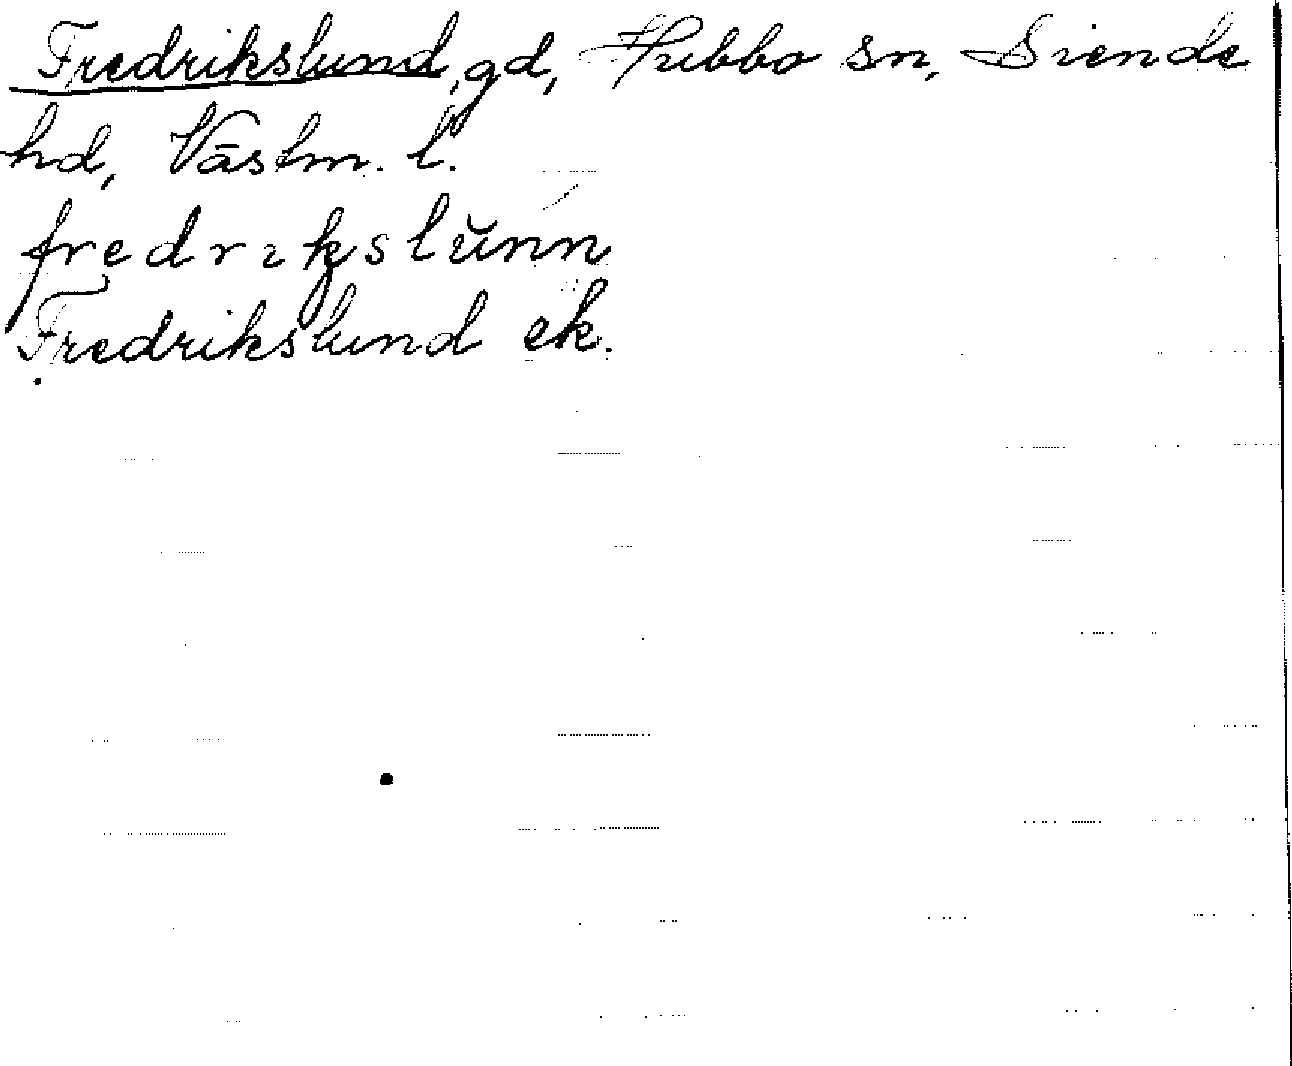 Fredrikslund, gd, Hubbo sn, Siende
hd, Västm. l.
fredrikslŭnn
Fredrikslund ek.